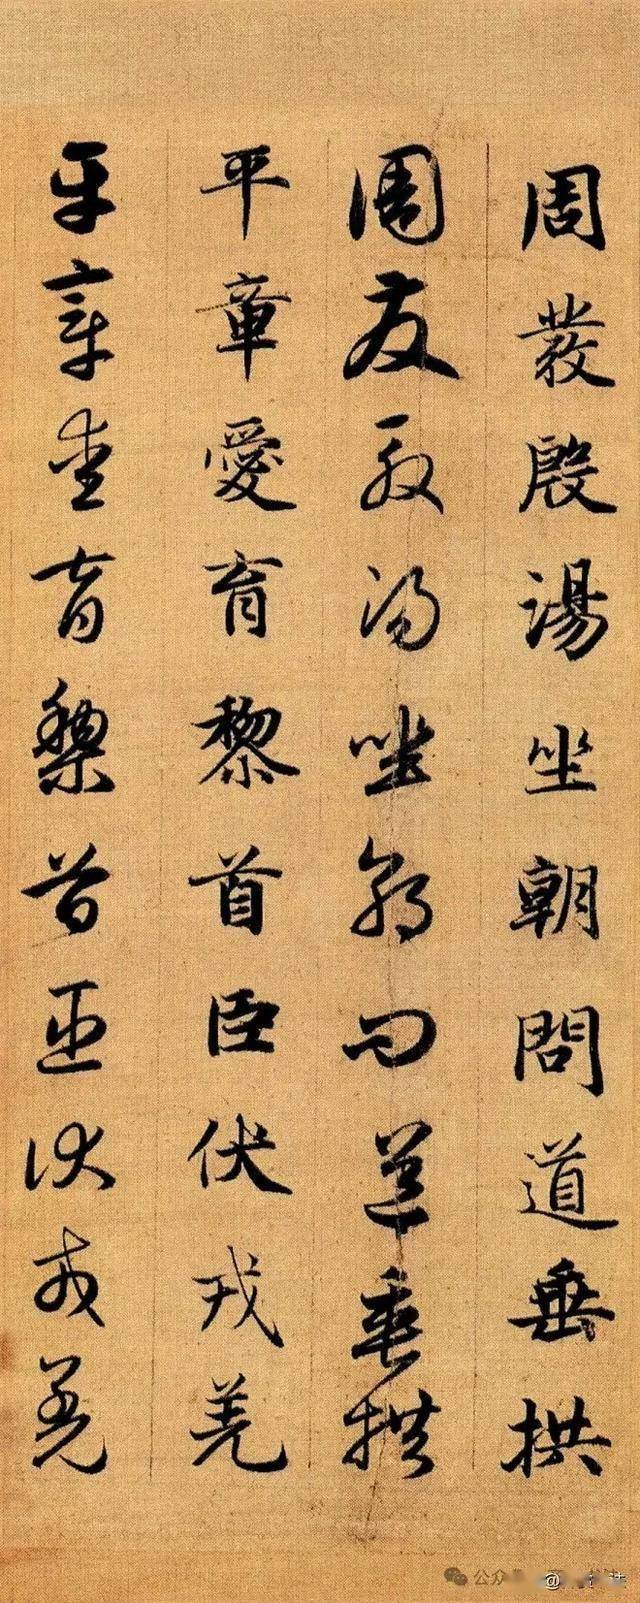 周發殷湯坐朝問道垂拱
周發殷湯坐朝問道垂拱
平章愛育黎首臣伏戎羌
平章愛育黎首臣伏戎羌
公众
@